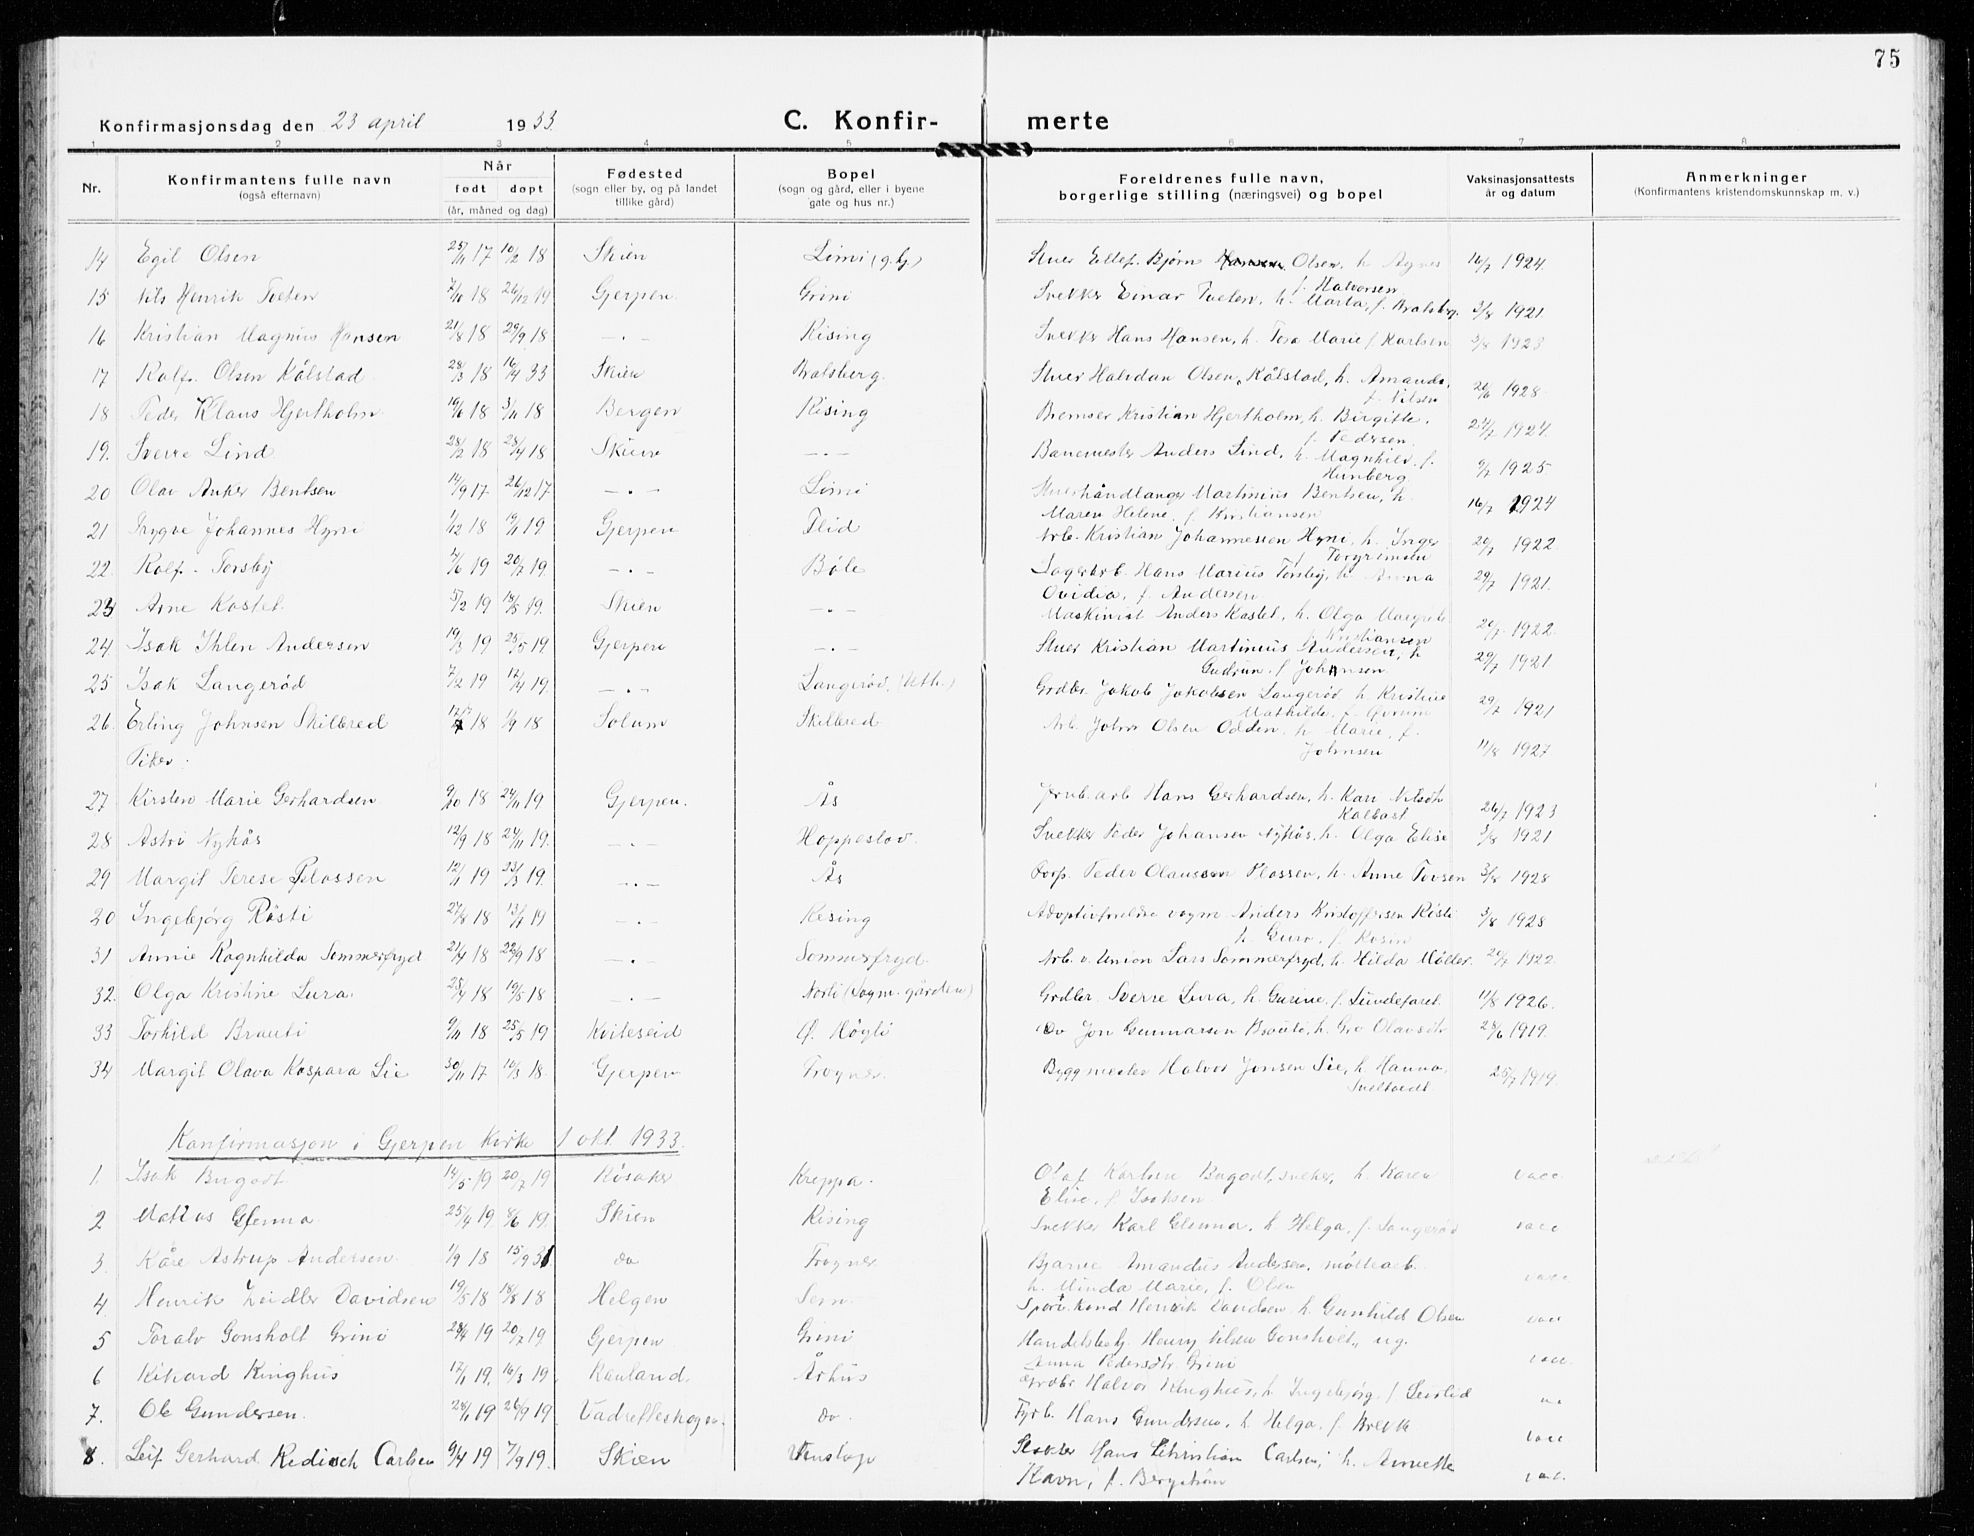 75
Konfirmasjonsdag den 23 april 1933
C. Konfir- merte
1 2 3 4 5 6 7 8
Nr. Konfirmantens fulle navn (også efternavn) Når født døpt (år, måned og dag) Fødested (sogn eller by, og på landet tillike gård) Bopel (sogn og gård, eller i byene gate og hus nr.) Foreldrenes fulle navn, borgerlige stilling (næringsvei) og bopel Vaksinasjonsattests år og datum Anmerkninger (Konfirmantens kristendomskunnskap m. v.)
14 Egil Olsen 25/11 17 10/2 18 Skien Limi (g.bj) Stuer Ellef Bjørn Olsen, h. Agnes f. Halvorsen 16/7 1924.
15 Nils Henrik Tveten 7/10 18 26/12 19 Gjerpen Grini Snekker Einar Tveten, h. Marta, f. Bratsberg. 3/8 1921
16 Kristian Magnus Hansen 21/8 18 29/9 18 — . — Rising Snekker Hans Hansen, h. Tora Marie f. Karlsen 3/8 1923
17 Ralf Olsen Kålstad 28/3 18 16/4 33 Skien Bratsberg. Stuer Halvdan Olsen Kålstad, h. Amanda, f. Nilsen 26/6 1928
18 Peder Klaus Hjertholm 19/6 18 3/11 18 Bergen Rising Bremser Kristian Hjertholm, h. Birgitte, f. Pedersen. 24/7 1924.
19. Sverre Lind 28/2 18 28/4 18 Skien — . — Banemester Anders Lind, h. Magnhild f. Hunberg 9/7 1925
20 Olav Anker Bentsen 14/9 17 26/12 17 — . — Limi Stuerhåndlanger Martinius Bentsen, h. Maren Helene, f. Kristiansen 16/7 1924
21 Trygve Johannes Hyni 1/12 18 19/1 19 Gjerpen Flid Arb. Kristian Johannessen Hyni, h. Inger f. Torgrimsen 20/7 1922
22. Rolf Torsby 4/6 19 20/7 19. — . — Bøle Lagerarb. Hans Marius Torsby, h. Anna Ovidia, f. Andersen 29/7 1921.
23 Arne Kastet 5/2 19 18/5 19. Skien — . — Maskinist Anders Kastet, h. Olga Margrete f. Kristiansen 20/7 1922.
24 Isak Ihlen Andersen 19/3 19 25/5 19 Gjerpen — . — Stuer Kristian Martinius Andersen, h Gudrun f Johansen 29/7 1921
25 Isak Langerød 7/2 19 12/4 19. — . — Langerød, Grdbr. Jakob Jakobsen Langerød h Kristine Mathilde, f. 29/7 1921
26. Erling Johnsen Skilbred 18 1/9 18 Solum Skilbred Arb. John Olsen Odden. h Marie, f. Johnsen 11/8 1927
Piker.
27 Kirsten Marie Gerhardsen 9/10 18 24/11 19 Gjerpen. Ås Jernb.arb Hans Gerhardsen, h. Kari Nilsdtr Kalbast 26/7 1923
28 Astri Nykås 12/9 18 24/11 19. — . — Hoppestad. Snekker Peder Johansen Nykås, h. Olga Elise 3/8 1921
29 Margit Terese Plassen 12/11 19 23/3 19. — . — Ås Forp. Peder Olaussen Plassen, h. Anne Tovsen 3/8 1928
30 Ingebjørg Røsti 27/8 18 13/7 19 — . — Rising Adoptivforeldre vogm. Anders Kristoffersen Røsti h. Guro. f. Rosin 3/8 1928
31 Annie Ragnhilda Sommerfryd 21/4 18 22/9 18 — . — Sommerfryd Arb. v. Union Lars Sommerfryd, h. Hilda Møller. 20/7 1922
32. Olga Kristine Lura 25/4 18 19/5 18 — . — Nordli (Sogn. gården) Grdbr. Sverre Lura, h. Gurine, f. Lundefaret 11/8 1926.
33 Torhild Brauti 9/11 18 25/5 19 Kviteseid Ø. Høgli Jon Gunnarsen Brauti, h. Gro Olavsdtr 28/6 1919.
34 Margit Olava Kaspara Lie 30/11 17 10/3 18 Gjerpen Frogner Byggmester Halvor Jonsen Lie, h. Hanna, 25/7 1919.
Konfirmasjon i Gjerpen Kirke 1 okt. 1933.
1. Isak Bugodt 14/5 19 20/7 19 Røsaker Kreppa. Olaf Karlsen Bugodt, snekker, h. Karen Elise, f. Isaksen. vacc.
2 Mattias Glenna 25/4 19 8/6 19. Skien Rising Snekker Karl Glenna, h. Helga, f Langerød vacc
3. Kåre Astrup Andersen 1/9 18 15/9 31 do Frogner Bjarne Amandus Andersen, møllearb. h. Minda Marie, f. Olsen vacc.
4 Henrik Zeidler Davidsen 19/5 18 18/8 18 Helgen Sem Henrik Davidsen, h. Gunhild Olsen vacc
5 Toralv Gonsholt Grini 28/4 19 20/7 19 Gjerpen Grini Handelsbetj. Henry Nilsen Gonsholt, ug. Anna Pedersdtr. Grini vacc.
6 Rikard Ringhus 17/1 19. 16/3 19 Rauland. Århus Grdbr Halvor Ringhus, h. Ingebjørg, f.
7. Ole Gundersen. 28/1 19 26/9 19 do. Fyrb. Hans Gundersen, h. Helga, f. Brekk vacc
8. Leif Gerhard Redisch Carlsen 9/4 19 7/9 19. Skien Venstøp Hans Christian Carlsen, h. Annette Kavn, f. Bergstrøm vacc.